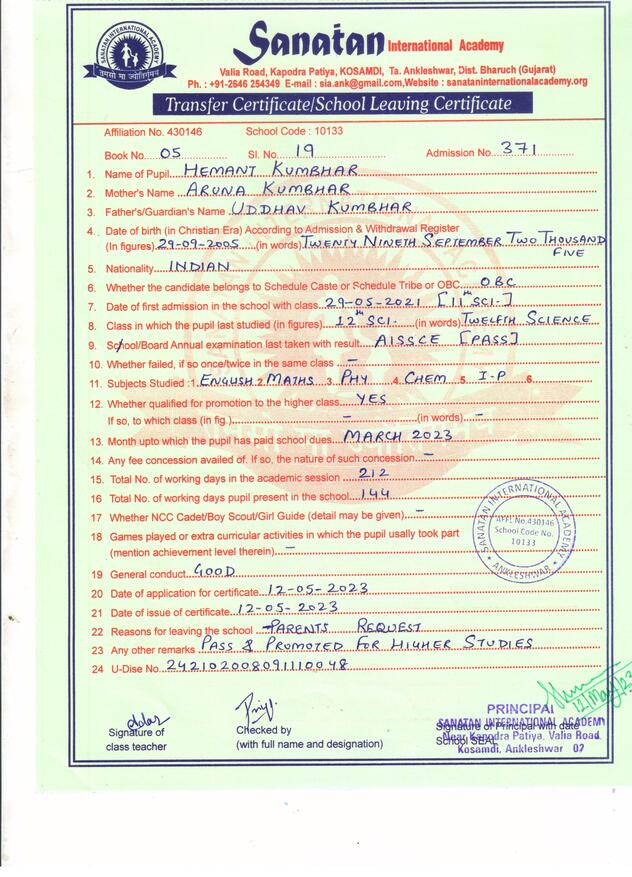 SANATAN INTERNATIONAL ACADEMY
तमसो मा ज्योतिर्गमय
Sanatan International Academy
Valia Road, Kapodra Patiya, KOSAMDI, Ta. Ankleshwar, Dist. Bharuch (Gujarat)
Ph. : +91-2646 254349 E-mail : sia.ank@gmail.com, Website : sanataninternationalacademy.org
Transfer Certificate/School Leaving Certificate
Affiliation No. 430146 School Code : 10133
Book No. 05 Sl. No. 19 Admission No. 371
1. Name of Pupil HEMANT KUMBHAR
2. Mother's Name ARUNA KUMBHAR
3. Father's/Guardian's Name UDDHAV KUMBHAR
4. Date of birth (in Christian Era) According to Admission & Withdrawal Register
(In figures) 29-09-2005 (in words) TWENTY NINETH SEPTEMBER TWO THOUSAND
FIVE
5. Nationality INDIAN
6. Whether the candidate belongs to Schedule Caste or Schedule Tribe or OBC OBC
7. Date of first admission in the school with class 29-05-2021 [11th SCI.]
8. Class in which the pupil last studied (in figures) 12th SCI. (in words) TWELFTH SCIENCE
9. School/Board Annual examination last taken with result AISSCE [PASS]
10. Whether failed, if so once/twice in the same class –
11. Subjects Studied : 1. ENGLISH 2. MATHS 3. PHY 4. CHEM 5. I-P 6.
12. Whether qualified for promotion to the higher class YES
If so, to which class (in fig.) – (in words) –
13. Month upto which the pupil has paid school dues MARCH 2023
14. Any fee concession availed of. If so, the nature of such concession –
15. Total No. of working days in the academic session 212
16 Total No. of working days pupil present in the school 144
17 Whether NCC Cadet/Boy Scout/Girl Guide (detail may be given) –
18 Games played or extra curricular activities in which the pupil usally took part
(mention achievement level therein) –
19 General conduct GOOD
20 Date of application for certificate 12-05-2023
21 Date of issue of certificate 12-05-2023
22 Reasons for leaving the school PARENTS REQUEST
23 Any other remarks PASS & PROMOTED FOR HIGHER STUDIES
24 U-Dise No. 242102008091110048
SANATAN INTERNATIONAL ACADEMY
AFFL No.430146
School Code No.
10133
ANKLESHWAR
12/May/23
PRINCIPAL
SANATAN INTERNATIONAL ACADEMY
Near Kapodra Patiya, Valia Road
Kosamdi, Ankleshwar 02
Signature of
class teacher
Checked by
(with full name and designation)
Signature of Principal with date
School SEAL